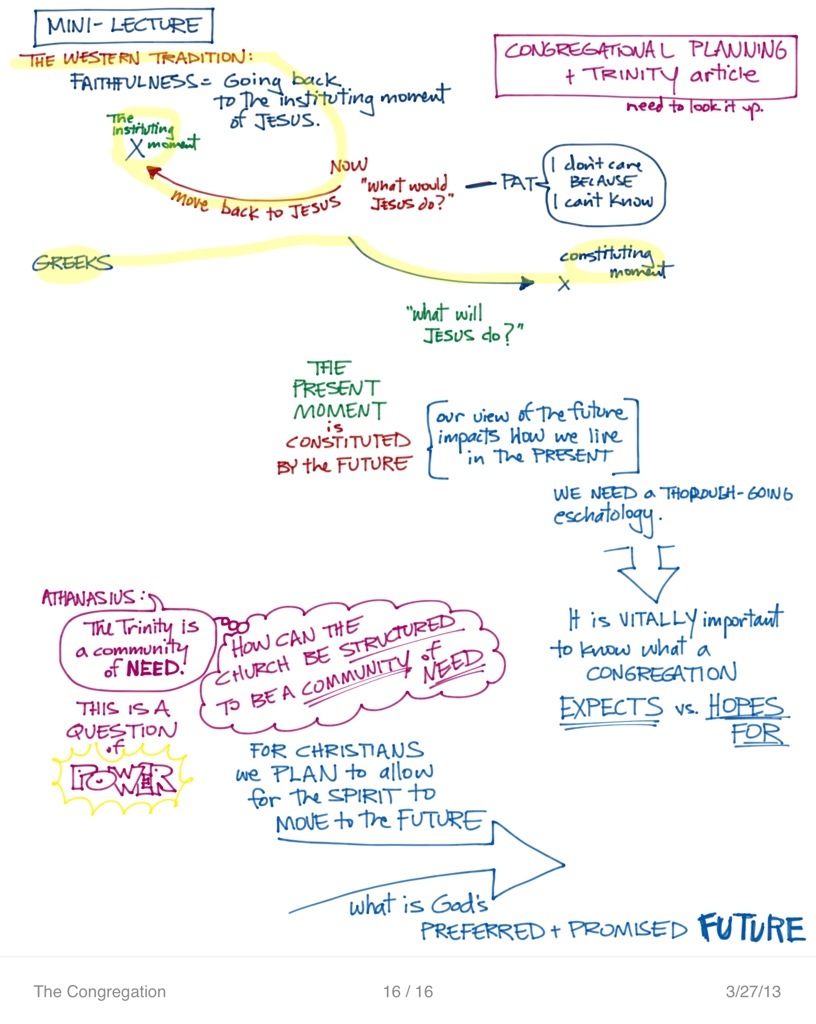 MINI-LECTURE
THE WESTERN TRADITION:
FAITHFULNESS = Going back
to the instituting moment
of JESUS.
CONGREGATIONAL PLANNING
+ TRINITY article
need to look it up.
The
instituting
X moment
NOW
move back to JESUS
"what would
JESUS do?"
— PAT
I don't care
BECAUSE
I can't know
GREEKS
constituting
moment
X
"what will
JESUS do?"
THE
PRESENT
MOMENT
is
CONSTITUTED
BY the FUTURE
our view of the future
impacts HOW we live
in the PRESENT
WE NEED a THOROUGH-GOING
eschatology.
It is VITALLY important
to know what a
CONGREGATION
EXPECTS vs. HOPES
FOR
ATHANASIUS:
The Trinity is
a community
of NEED.
HOW CAN THE
CHURCH BE STRUCTURED
TO BE A COMMUNITY of
NEED
THIS IS A
QUESTION
of
POWER
FOR CHRISTIANS
we PLAN to allow
for the SPIRIT to
MOVE to the FUTURE
what is God's
PREFERRED + PROMISED FUTURE
The Congregation
16 / 16
3/27/13